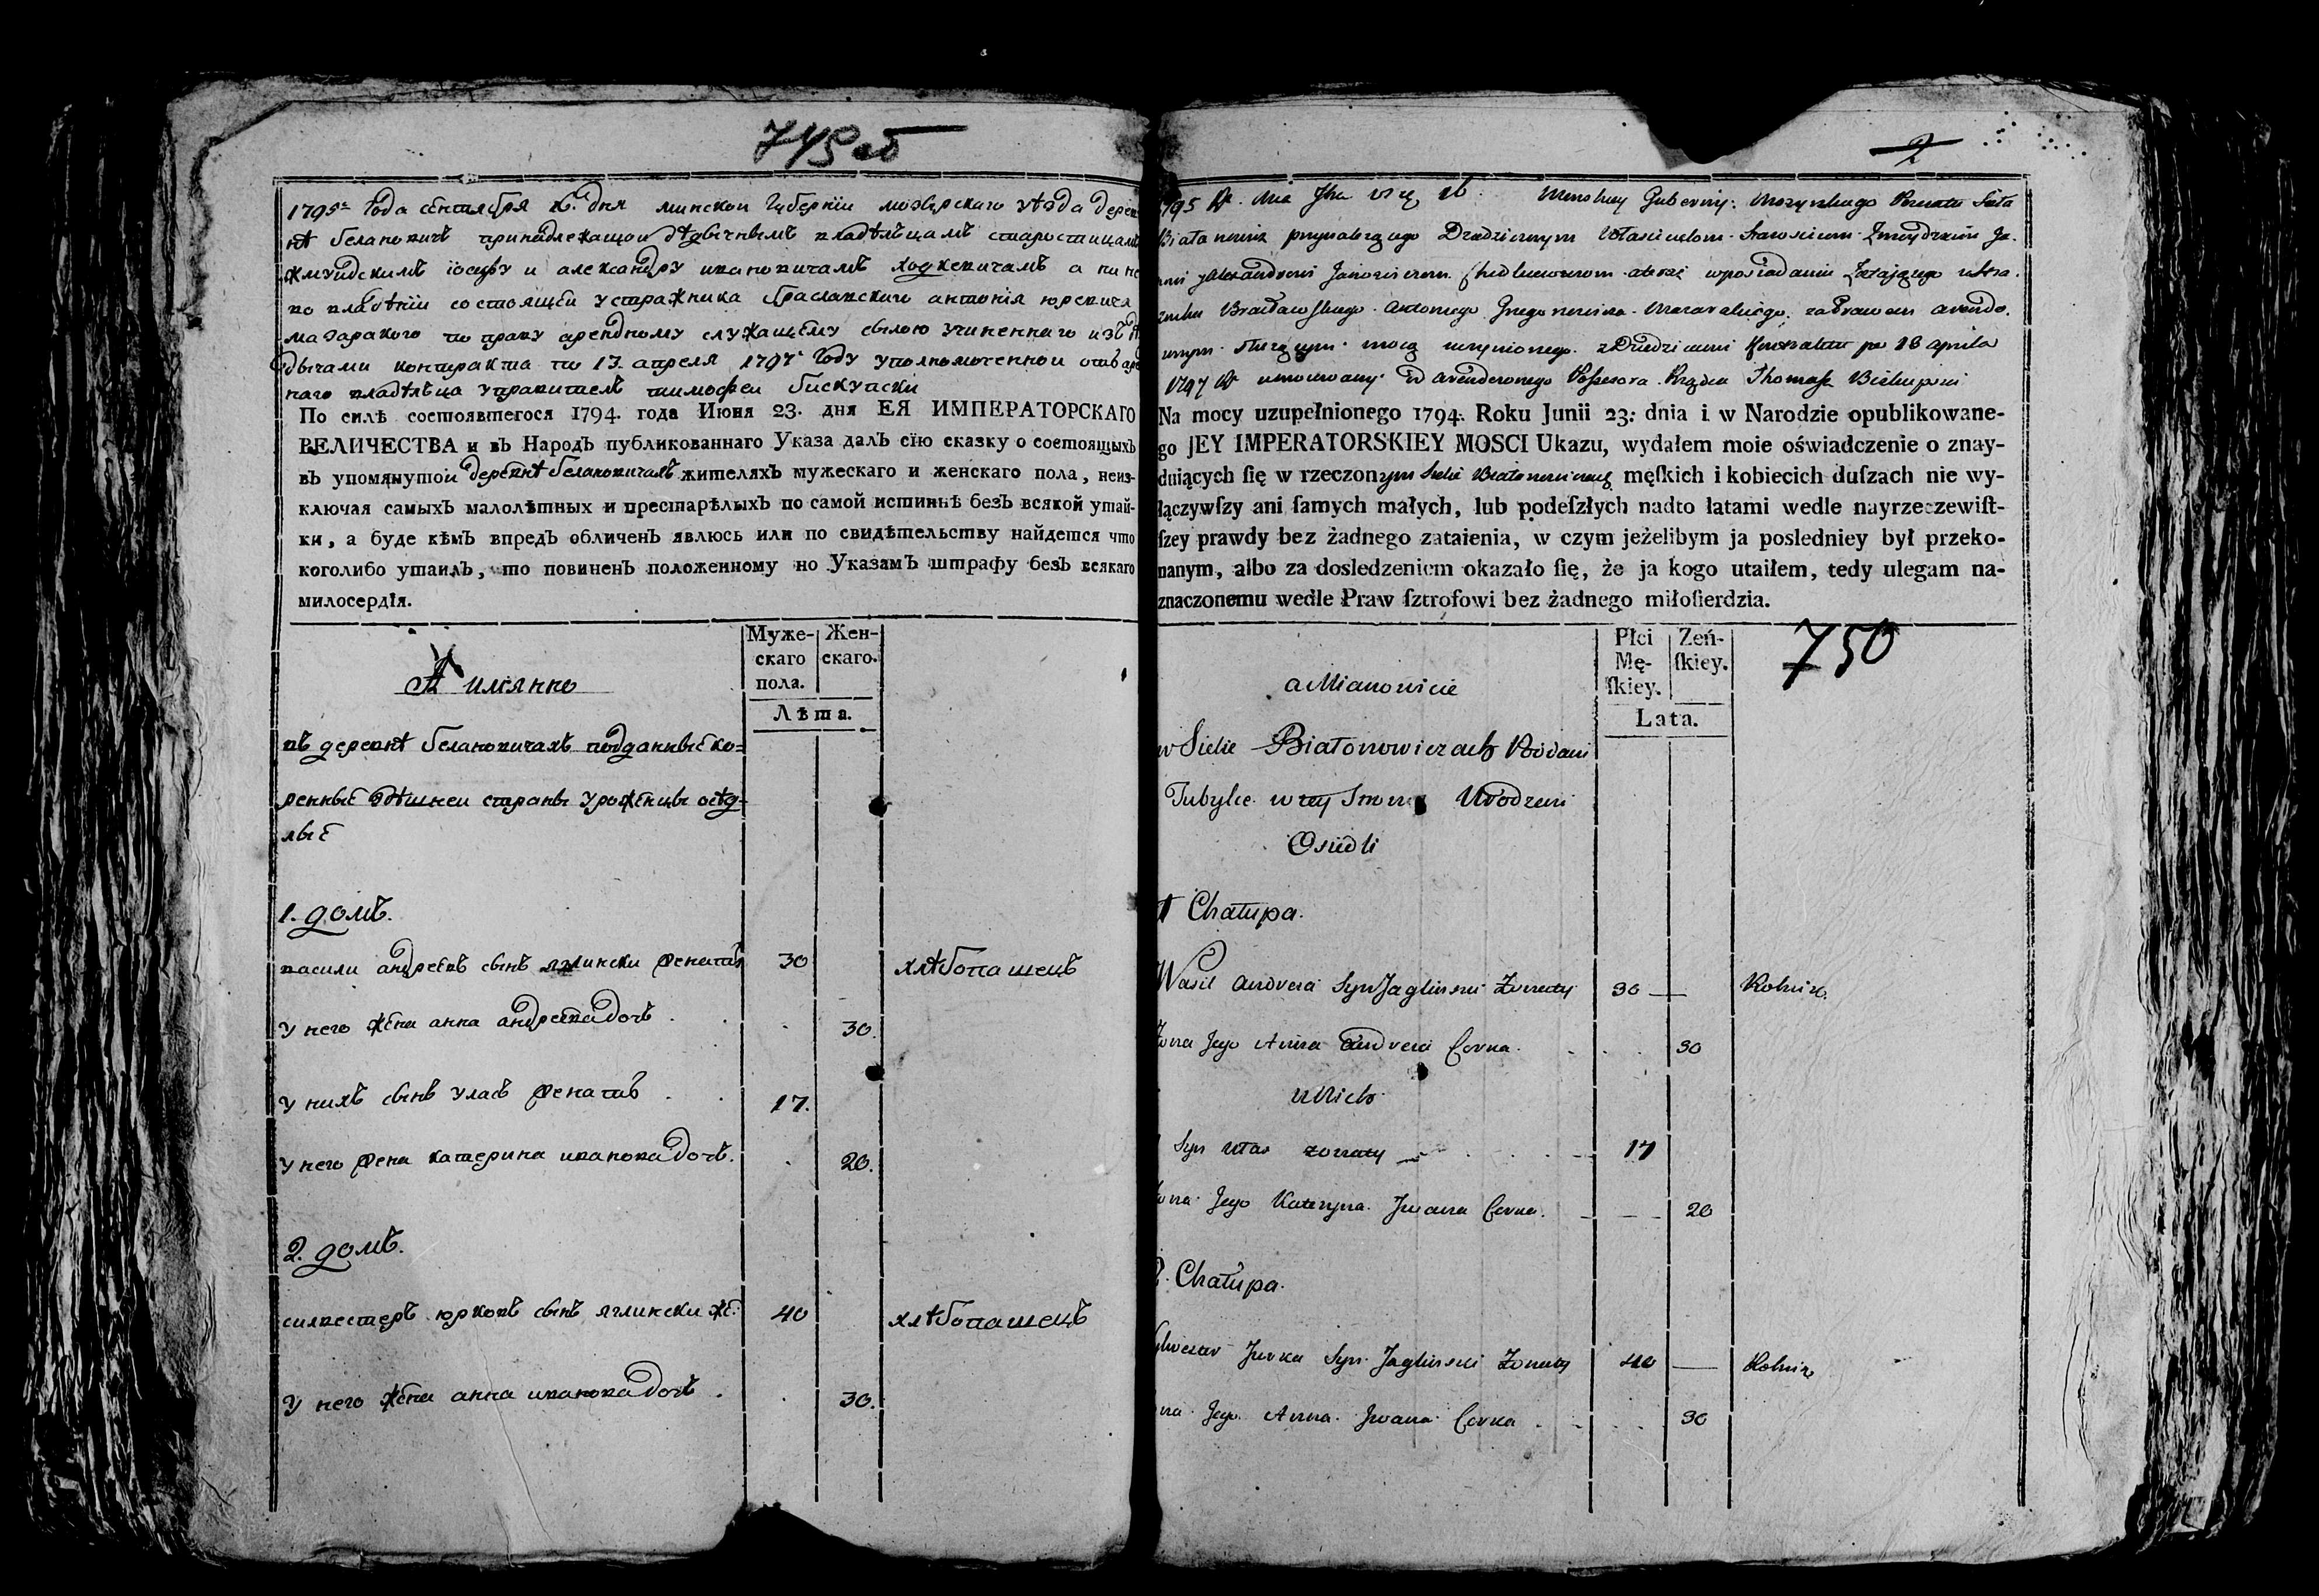 749 об
1795го Года сентября дня минскои Губернiи мозырского уѣзда дерев
нѣ белановичъ принадлежащои дѣдычнымъ владѣльцамъ старостицамъ
жмуидскимъ iосифу и александру ивановичамъ ходкевичамъ а ны не
во владѣнiи состоящеи у стражника браславского антонiя юревича
мазаракого по праву арендному служащему силою учиненнаго изъ дѣ
дычами контракта по 13. апреля 1797 Году уполномоченнои отъ арен
наго владѣльца управитель тимофеи бискупски
По силѣ состоявшегося 1794. года Июня 23. дня ЕЯ ИМПЕРАТОРСКАГО
ВЕЛИЧЕСТВА и въ Народъ публикованнаго Указа далъ сїю сказку о состоящыхъ
въ упомянутой деревнѣ белановичахъ жителяхъ мужескаго и женскаго пола, неиз-
ключая самыхъ малолѣтныхъ и престарѣлыхъ по самой истиннѣ безъ всякой утай-
ки, а буде кѣмъ впредъ обличенъ явлюсь или по свидѣтельству найдется что
коголибо утаилъ, то повиненъ положенному по Указамъ штрафу безъ всякаго
милосердїя.
А имянно
Муже-
скаго
пола.
Жен-
скаго.
Лѣта.
въ деревнѣ белановичахъ подданные ко=
ренные здѣшнеи страны уроженцы осѣд-
лые
1. домъ.
васили андреевъ сынъ яглински женатъ 30 хлѣбопашецъ
у него жена анна андреева дочь . 30.
у нихъ сынъ уласъ женатъ . 17.
у него жена катерина иванова дочь. 20.
2. домъ.
силвестеръ юрковъ сынъ яглински же: 40 хлѣбопашецъ
у него жена анна иванова дочь . 30.
2
1795 Minskiey Gubernij. Mozyrskiego Powiatu Sioła
Białanowicz przynależącego Dziedzicznym Właścicielom Starościcom Zmuydzkim Jo.
Alexandrowi Janowiczom Chodkiewiczom
Bracławskiego Antoniego
mocą uczynionego z Dziedzicami Kontraktu po 13 Aprila
1797 umocowany od arendownego Possesora Rządca Thomasz Biskupski
Na mocy uzupełnionego 1794. Roku Junii 23: dnia i w Narodzie opublikowane-
go JEY IMPERATORSKIEY MOSCI Ukazu, wydałem moie oświadczenie o znay-
duiących ſię w rzeczonym Siele Białonowiczach męſkich i kobiecich duſzach nie wy-
łączywſzy ani ſamych małych, lub podeſzłych nadto łatami wedle nayrzeczewiſt-
ſzey prawdy bez żadnego zataienia, w czym jeżelibym ja posledniey był przeko-
nanym, albo za dosledzeniem okazało ſię, że ja kogo utaiłem, tedy ulegam na-
znaczonemu wedle Praw ſztrofowi bez żadnego miłoſierdzia.
a Mianowicie
Płci
Mę-
ſkiey.
Zeń-
ſkiey.
Lata.
750
w Siele Białonowiczach Podani
Tubylce w tey Stronie Urodzeni
Osiedli
1 Chałupa.
Wasil Andreia Syn Jagliński Żonaty 30 — Rolnik.
Żona Jego Anna Andreia Corka. 30
u Nich
Syn Ułas żonaty 17
żona Jego Kateryna Jwana Corka. 20
2. Chałupa.
Sylwester Jurka Syn Jagliński Żonaty 40 — Rolnik
żona Jego Anna Jwana Corka 30